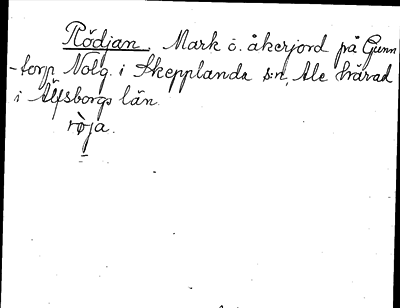 Rödjan. Mark o. åkerjord på Gunn
-torp Nolg. i Skepplanda s:n, Ale härad
i Älfsborgs län.
rö̀ja.